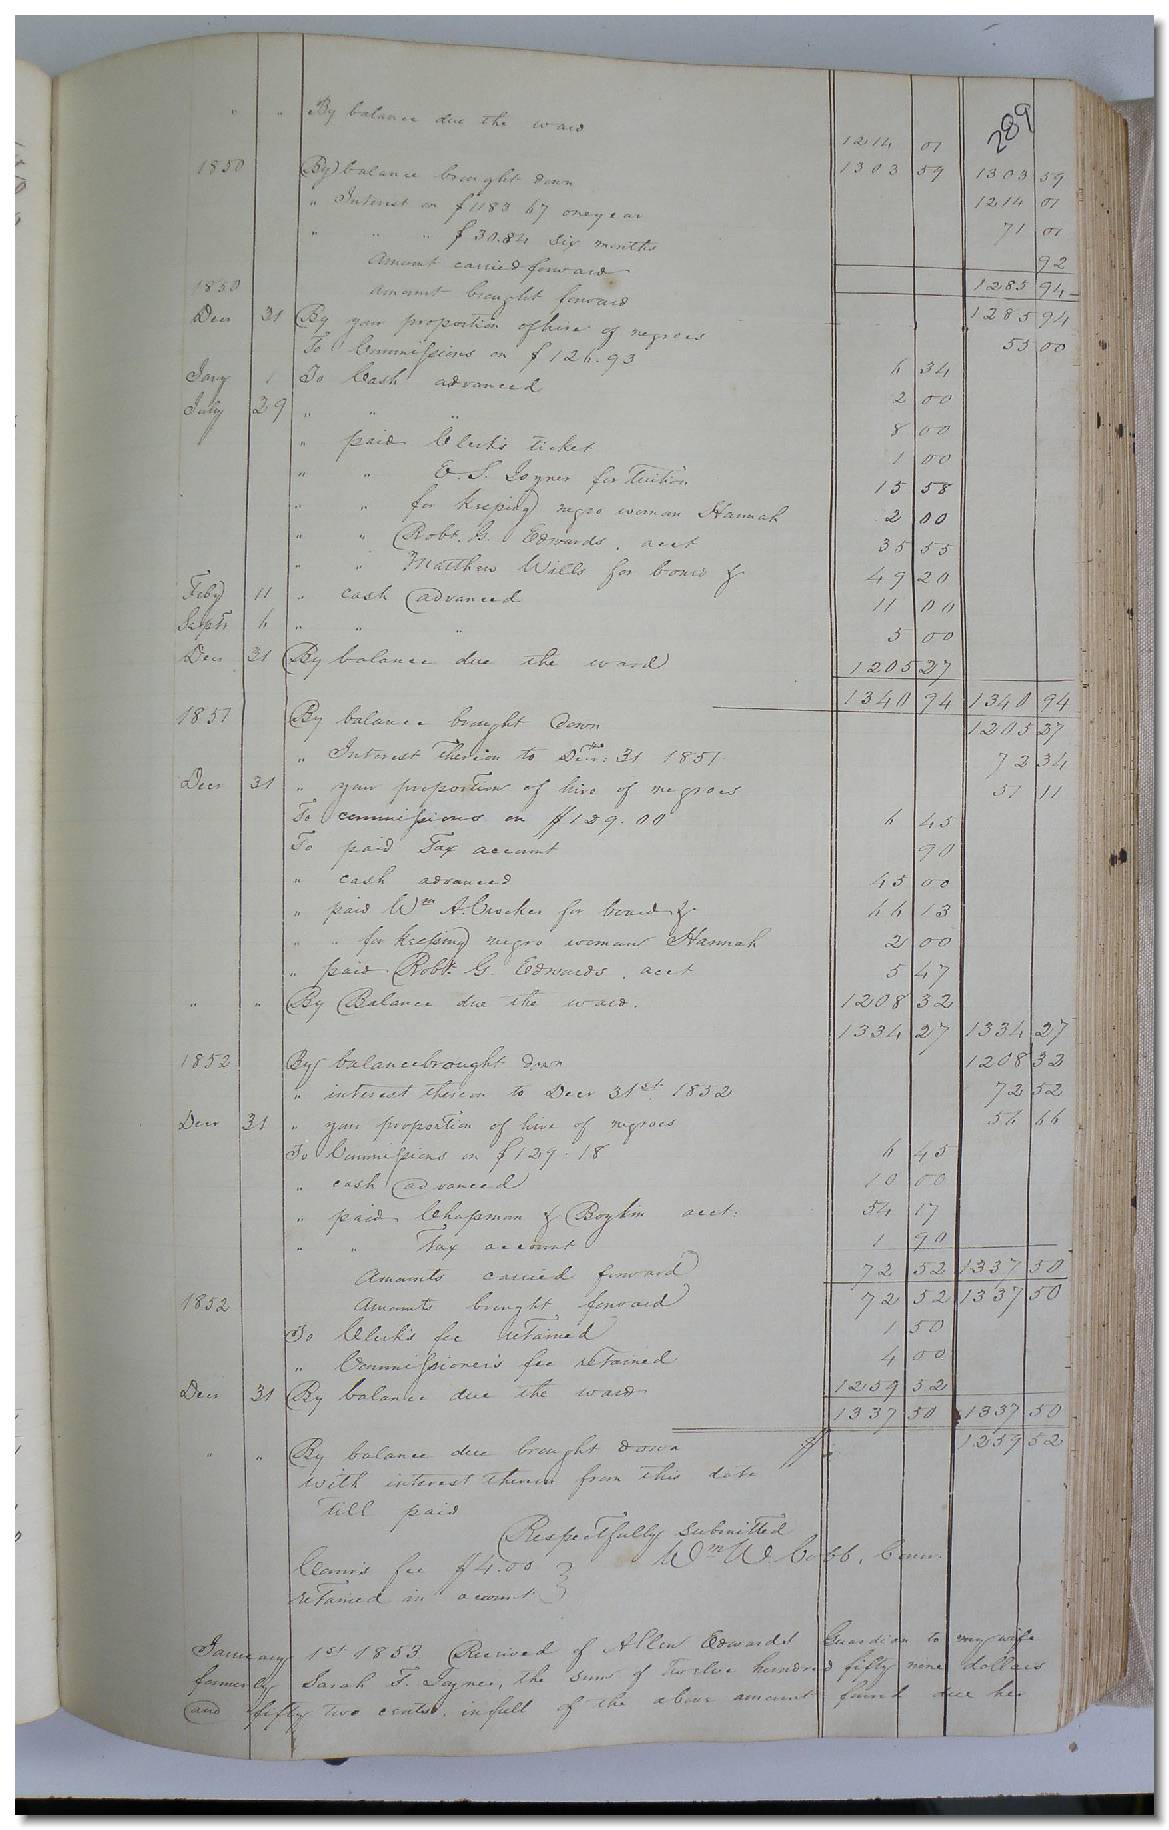 289
" " By balance due the ward 1214 01
1303 59 1303 59
1850 By balance brought down 1214 01
" Interest on $1183 67 one year 71 01
" " " $30.84 six months 92
Amount carried forward 1285 94
1850 Amount brought forward 1285 94
Decr 31 By your proportion of hire of negroes 55 00
To Commissions on $126.93 6 34
Jany 1 To Cash advanced 2 00
July 29 " " " 8 00
" paid Clerk's ticket 1 00
" " E. S. Joyner for Tuition 15 58
" " for keeping negro woman Hannah 2 00
" " Robt. G. Edwards, acct 35 55
" " Matthew Wills for board & 49 20
Feby 11 " cash advanced 11 00
Septr 6 " " " 5 00
Decr 31 By balance due the ward 1205 27
1340 94 1340 94
1851 By balance brought down 1205 27
" Interest thereon to Decr. the 31 1851 72 34
Decr 31 " your proportion of hire of negroes 51 11
To commissions on $129.00 6 45
To paid Tax account 90
" cash advanced 45 00
" paid Wm A. Crocker for board & 66 13
" " for keeping negro woman Hannah 2 00
" paid Robt. G. Edwards, acct 5 47
" " By Balance due the ward. 1208 32
1334 27 1334 27
1852 By balance brought down 1208 32
" interest thereon to Decr 31st. 1852 72 52
Decr 31 " your proportion of hire of negroes 56 66
To Commissions on $129.18 6 45
" cash advanced 10 00
" paid Chapman & Boykin acct: 54 17
" " Tax account 1 90
Amounts carried forward 72 52 1337 50
1852 Amounts brought forward 72 52 1337 50
To Clerk's fee retained 1 50
" Commissioner's fee retained 4 00
Decr 31 By balance due the ward 1259 52
1337 50 1337 50
" " By balance due brought down $ 1259 52
with interest thereon from this date
till paid
Respectfully Submitted
Wm W. Cobb, Comr.
Comrs fee $4.00 }
retained in account }
January 1st 1853 Received of Allen Edwards Guardian to my wife
formerly Sarah F. Joyner, the sum of twelve hundred fifty nine dollars
and fifty two cents. in full of the above amount found due her